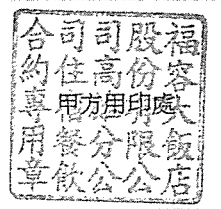 福容大飯店
股份有限公
司高分公
司住宿餐飲
合約專用章
甲方用印處